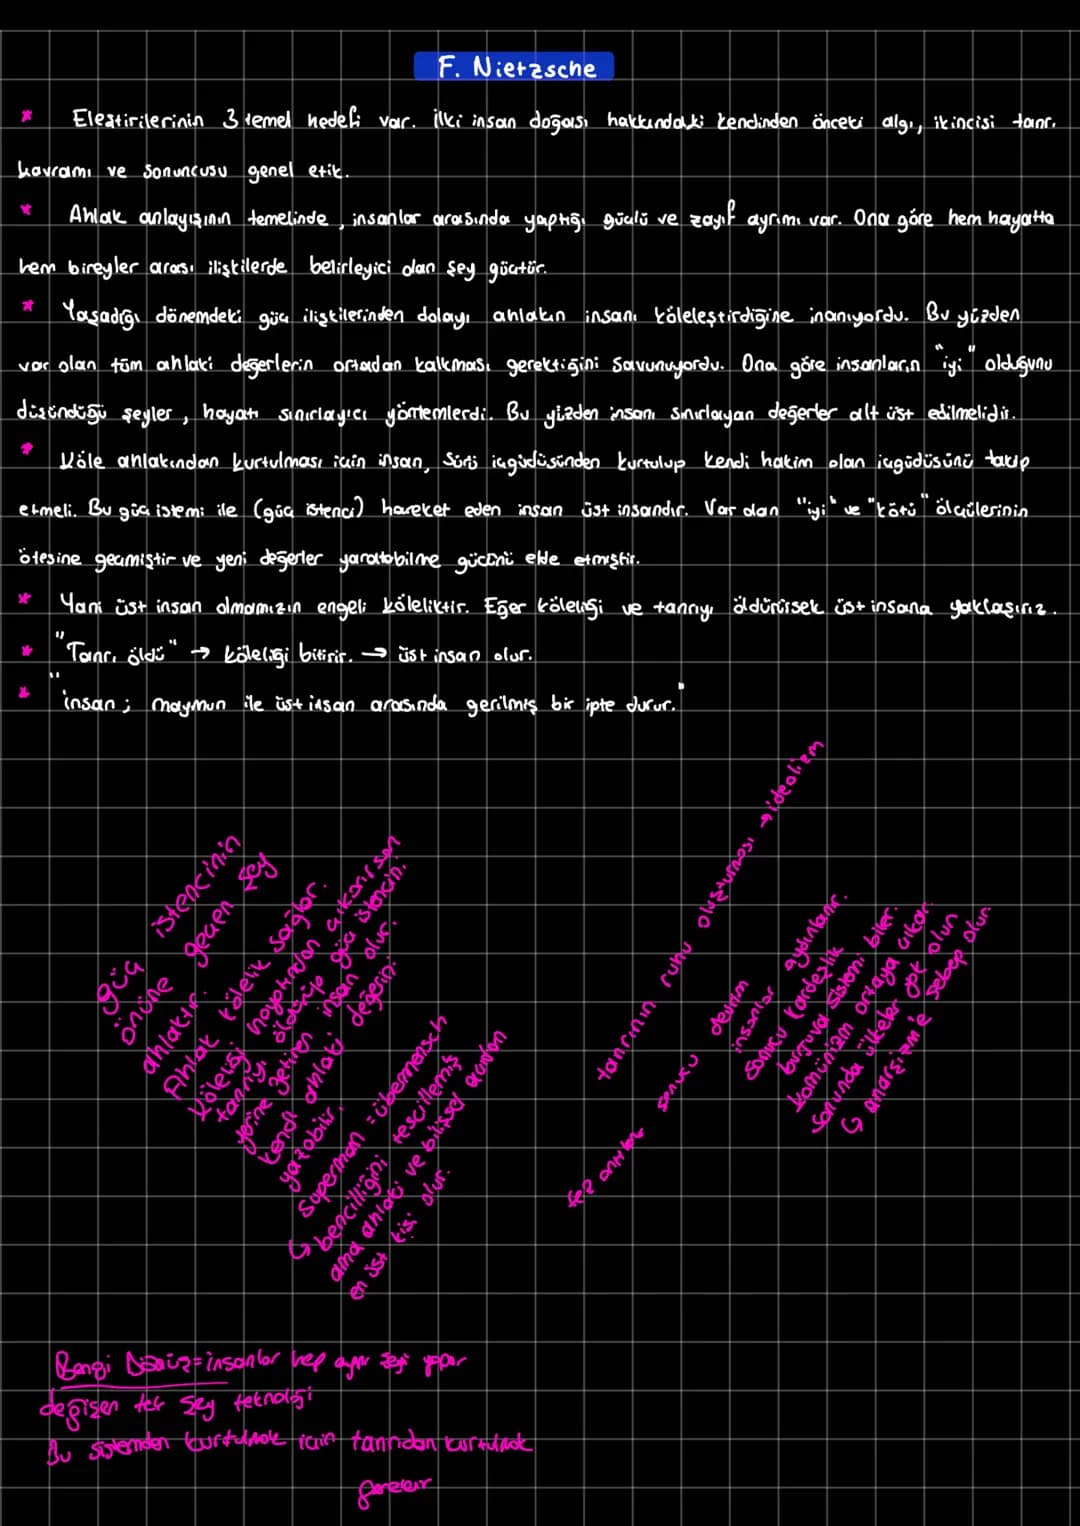 F. Nietzsche
* Eleştirilerinin 3 temel hedefi var. ilki insan doğası hakkındaki kendinden önceki algı, ikincisi tanrı
kavramı ve sonuncusu genel etik.
* Ahlak anlayışının temelinde, insanlar arasında yaptığı güçlü ve zayıf ayrımı var. Ona göre hem hayatta
hem bireyler arası ilişkilerde belirleyici olan şey güçtür.
* Yaşadığı dönemdeki güç ilişkilerinden dolayı ahlakın insanı köleleştirdiğine inanıyordu. Bu yüzden
var olan tüm ahlaki değerlerin ortadan kalkması gerektiğini savunuyordu. Ona göre insanların "iyi" olduğunu
düşündüğü şeyler, hayatı sınırlayıcı yöntemlerdi. Bu yüzden insanı sınırlayan değerler alt üst edilmelidir.
* Köle ahlakından kurtulması için insan, Sürü içgüdüsünden kurtulup kendi hakim olan içgüdüsünü takip
etmeli. Bu güç istemi ile (güç istenci) hareket eden insan üst insandır. Var olan "iyi" ve "kötü" ölçülerinin
ötesine geçmiştir ve yeni değerler yaratabilme gücünü elde etmiştir.
* Yani üst insan olmamızın engeli köleliktir. Eğer köleliği ve tanrıyı öldürürsek üst insana yaklaşırız.
* "Tanrı öldü" → köleliği bitirir. → üst insan olur.
* "insan; maymun ile üst insan arasında gerilmiş bir ipte durur."
güç istencinin
önüne geçen şey
ahlaktır.
Ahlak kölelik sağlar.
Köleliği hayatından çıkarırsan
tanrıyı öldürüp güç istencin.
yerine getiren insan olur.
kendi ahlaki değerini
yazabilir.
Superman = übermensch
↳ bencilliğini tescillemiş
ama ahlaki ve bilişsel açıdan
en üst kişi olur.
tanrının ruhu oluşturması → idealizm
sonucu devrim
insanlar aydınlanır.
Sonucu kardeşlik
burjuva sistemi biter.
komünizm ortaya çıkar.
Sonunda ülkeler yok olur
↳ anarşizme sebep olur.
Bengi Dönüş = insanlar hep aynı şeyi yapar
değişen tek şey teknoloji
Bu sistemden kurtulmak için tanrıdan kurtulmak
gerekir